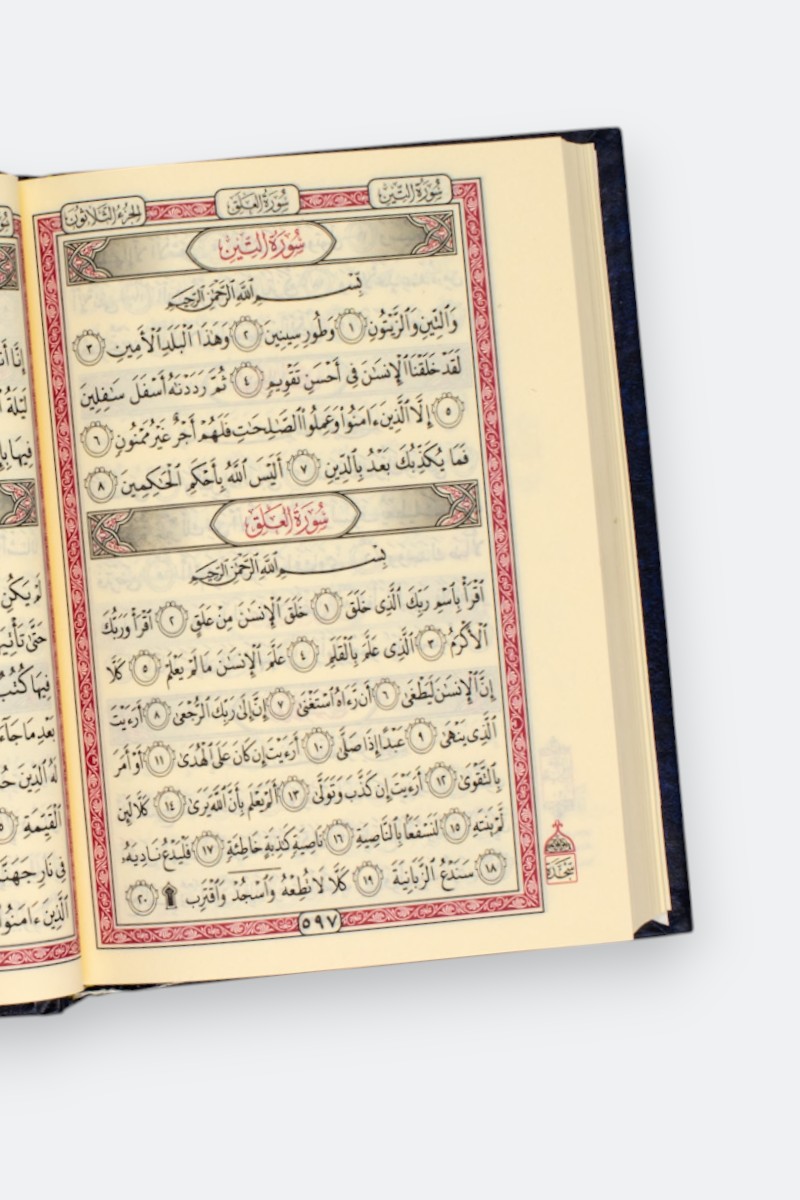 سُورَةُ التِّينِ
سُورَةُ العَلَقِ
الجُزْءُ الثَّلَاثُونَ
سُورَةُ التِّينِ
بِسْمِ ٱللَّهِ ٱلرَّحْمَٰنِ ٱلرَّحِيمِ
وَٱلتِّينِ وَٱلزَّيْتُونِ ١ وَطُورِ سِينِينَ ٢ وَهَٰذَا ٱلْبَلَدِ ٱلْأَمِينِ ٣
لَقَدْ خَلَقْنَا ٱلْإِنسَٰنَ فِىٓ أَحْسَنِ تَقْوِيمٍ ٤ ثُمَّ رَدَدْنَٰهُ أَسْفَلَ سَٰفِلِينَ
٥ إِلَّا ٱلَّذِينَ ءَامَنُوا۟ وَعَمِلُوا۟ ٱلصَّٰلِحَٰتِ فَلَهُمْ أَجْرٌ غَيْرُ مَمْنُونٍ ٦
فَمَا يُكَذِّبُكَ بَعْدُ بِٱلدِّينِ ٧ أَلَيْسَ ٱللَّهُ بِأَحْكَمِ ٱلْحَٰكِمِينَ ٨
سُورَةُ العَلَقِ
بِسْمِ ٱللَّهِ ٱلرَّحْمَٰنِ ٱلرَّحِيمِ
ٱقْرَأْ بِٱسْمِ رَبِّكَ ٱلَّذِى خَلَقَ ١ خَلَقَ ٱلْإِنسَٰنَ مِنْ عَلَقٍ ٢ ٱقْرَأْ وَرَبُّكَ
ٱلْأَكْرَمُ ٣ ٱلَّذِى عَلَّمَ بِٱلْقَلَمِ ٤ عَلَّمَ ٱلْإِنسَٰنَ مَا لَمْ يَعْلَمْ ٥ كَلَّآ
إِنَّ ٱلْإِنسَٰنَ لَيَطْغَىٰٓ ٦ أَن رَّءَاهُ ٱسْتَغْنَىٰٓ ٧ إِنَّ إِلَىٰ رَبِّكَ ٱلرُّجْعَىٰٓ ٨ أَرَءَيْتَ
ٱلَّذِى يَنْهَىٰ ٩ عَبْدًا إِذَا صَلَّىٰٓ ١٠ أَرَءَيْتَ إِن كَانَ عَلَى ٱلْهُدَىٰٓ ١١ أَوْ أَمَرَ
بِٱلتَّقْوَىٰٓ ١٢ أَرَءَيْتَ إِن كَذَّبَ وَتَوَلَّىٰٓ ١٣ أَلَمْ يَعْلَم بِأَنَّ ٱللَّهَ يَرَىٰ ١٤ كَلَّا لَئِن
لَّمْ يَنتَهِ ١٥ لَنَسْفَعًۢا بِٱلنَّاصِيَةِ ١٦ نَاصِيَةٍ كَٰذِبَةٍ خَاطِئَةٍ ١٧ فَلْيَدْعُ نَادِيَهُۥ
١٨ سَنَدْعُ ٱلزَّبَانِيَةَ ١٩ كَلَّا لَا تُطِعْهُ وَٱسْجُدْ وَٱقْتَرِب ۩ ٢٠
سَجْدَة
٥٩٧